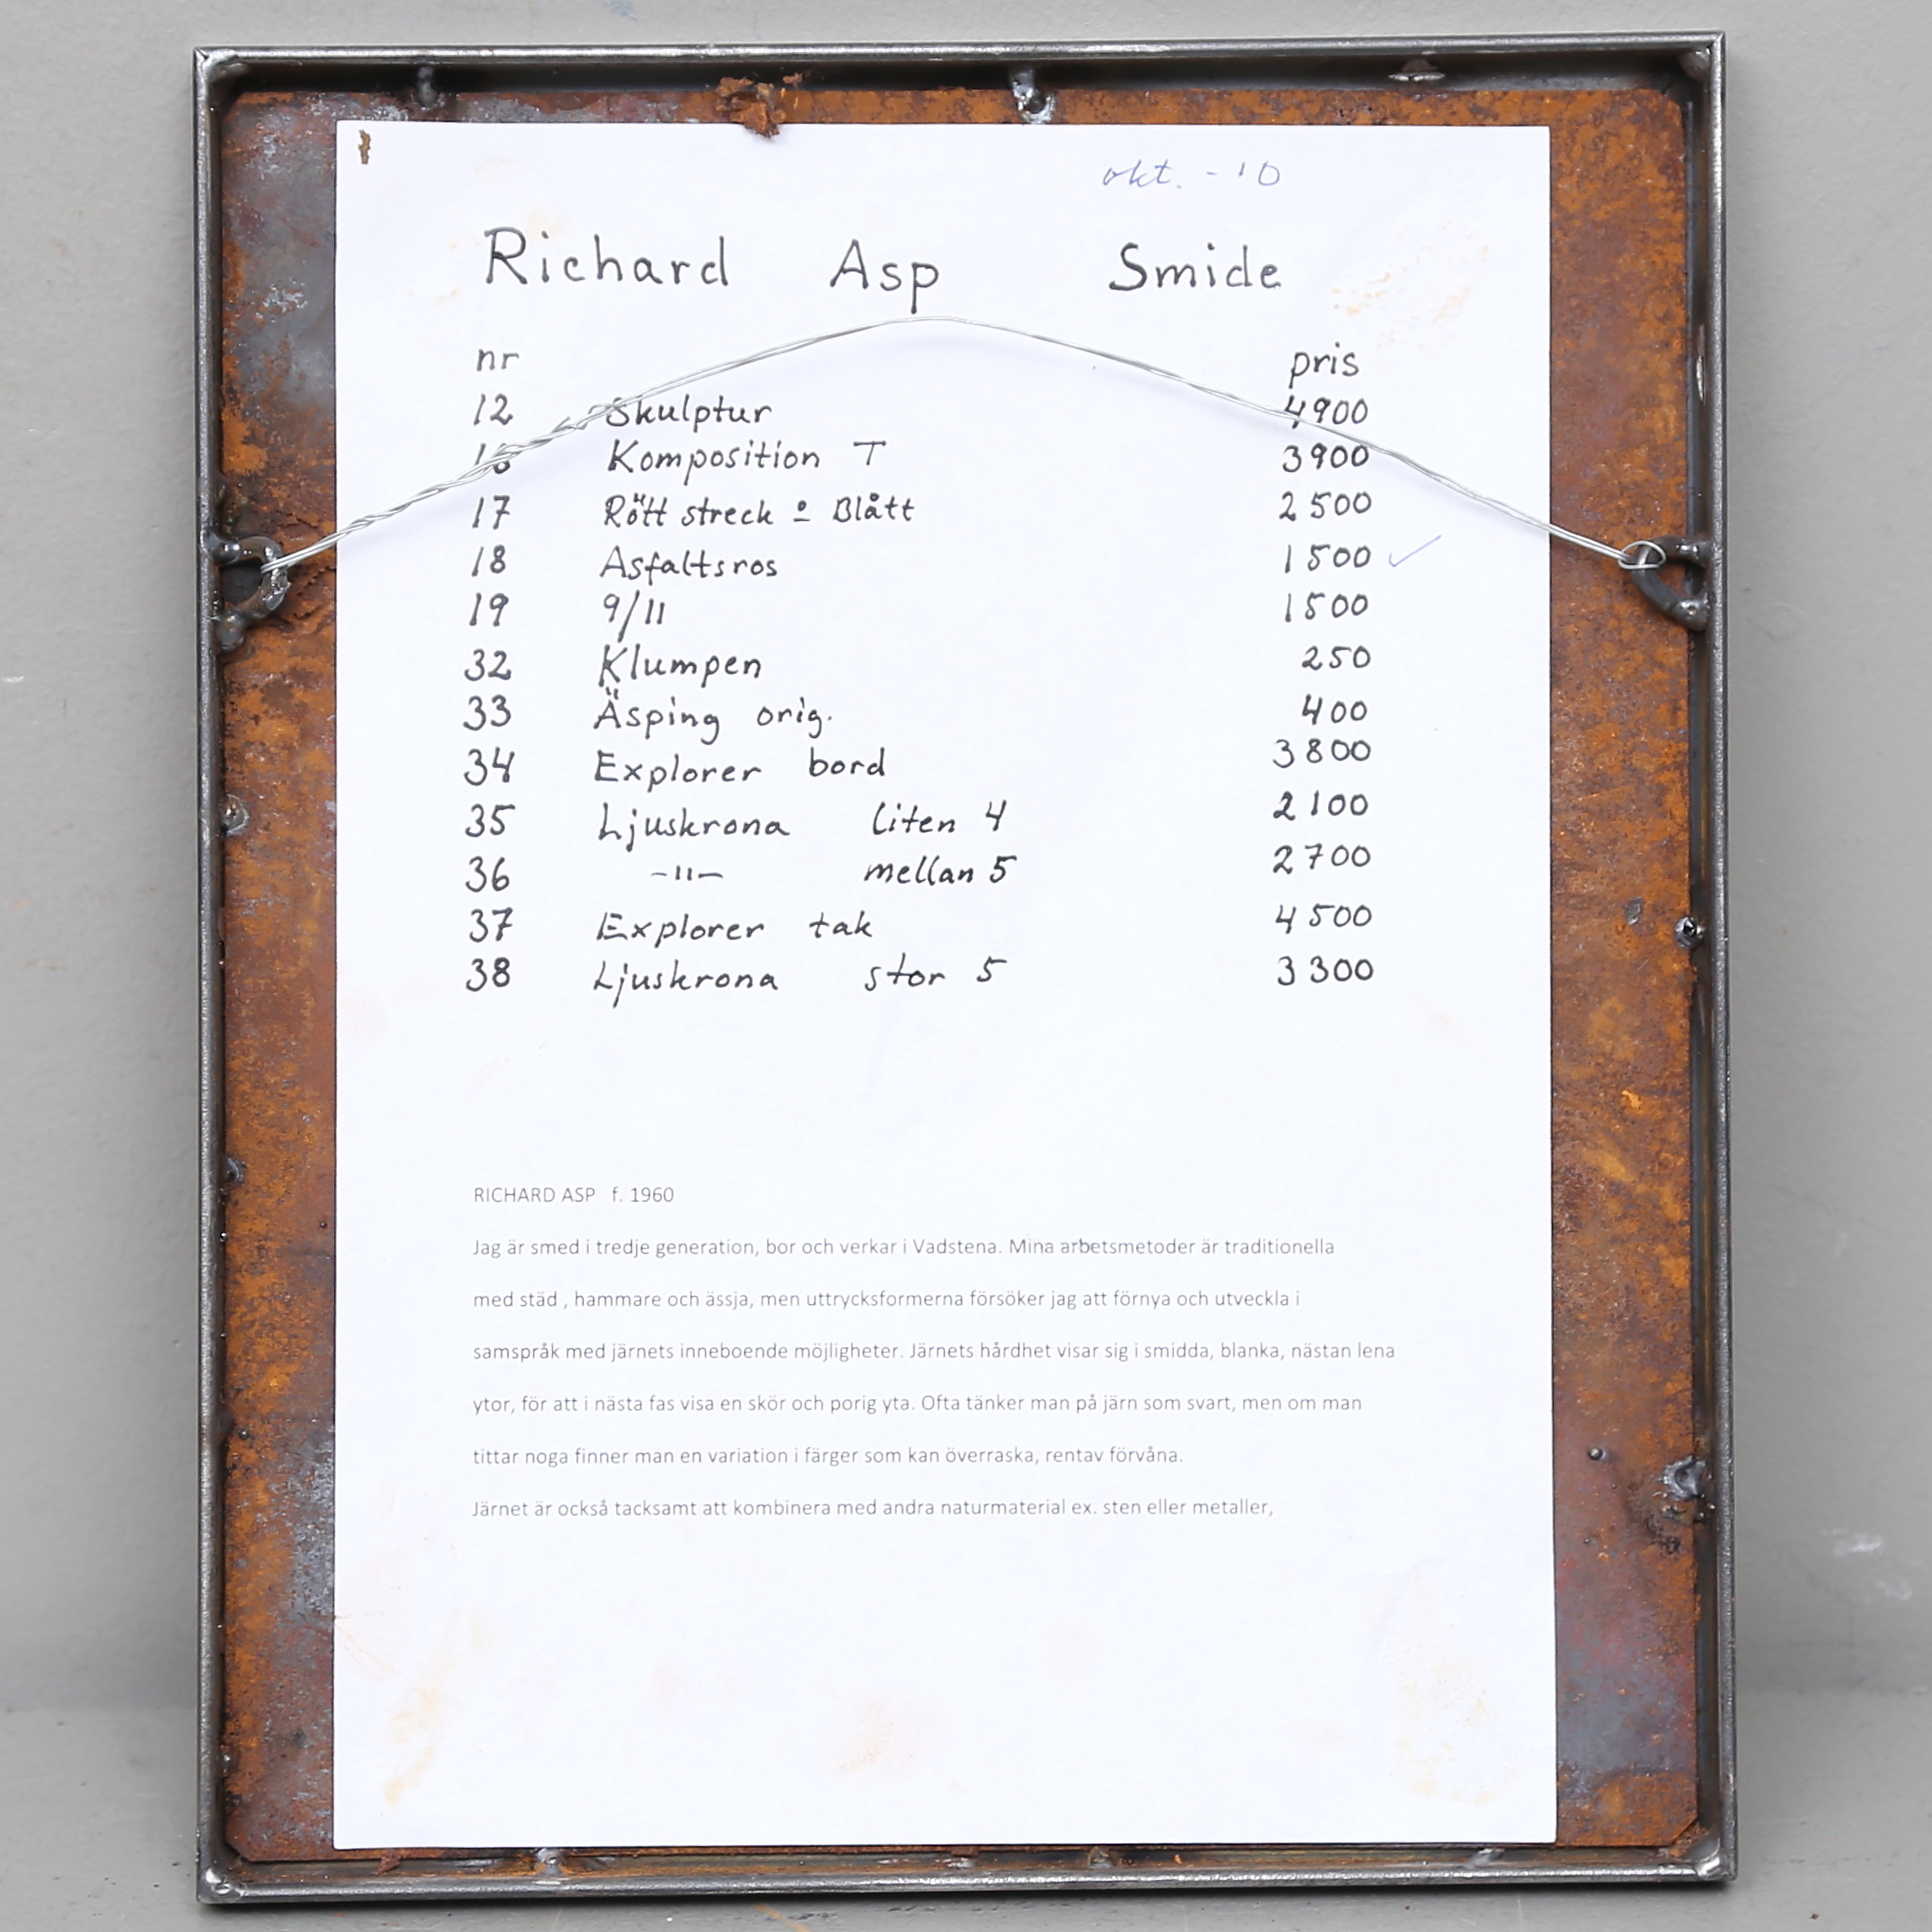 okt. - 10
Richard Asp Smide
nr pris
12 Skulptur 4900
16 Komposition T 3900
17 Rött streck o Blått 2500
18 Asfaltsros 1500 ✓
19 9/11 1500
32 Klumpen 250
33 Äsping orig. 400
34 Explorer bord 3800
35 Ljuskrona liten 4 2100
36 -"- mellan 5 2700
37 Explorer tak 4500
38 Ljuskrona stor 5 3300
RICHARD ASP f. 1960
Jag är smed i tredje generation, bor och verkar i Vadstena. Mina arbetsmetoder är traditionella
med städ , hammare och ässja, men uttrycksformerna försöker jag att förnya och utveckla i
samspråk med järnets inneboende möjligheter. Järnets hårdhet visar sig i smidda, blanka, nästan lena
ytor, för att i nästa fas visa en skör och porig yta. Ofta tänker man på järn som svart, men om man
tittar noga finner man en variation i färger som kan överraska, rentav förvåna.
Järnet är också tacksamt att kombinera med andra naturmaterial ex. sten eller metaller,